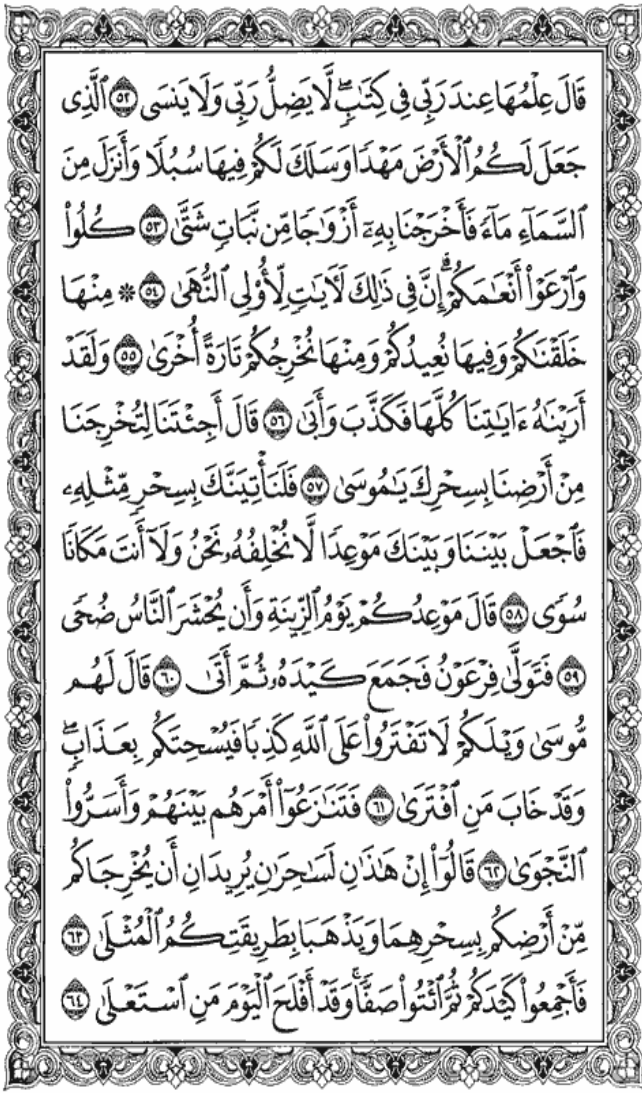 قَالَ عِلْمُهَا عِندَ رَبِّي فِي كِتَٰبٍۖ لَّا يَضِلُّ رَبِّي وَلَا يَنسَى ٥٢ ٱلَّذِي
جَعَلَ لَكُمُ ٱلْأَرْضَ مَهْدًا وَسَلَكَ لَكُمْ فِيهَا سُبُلًا وَأَنزَلَ مِنَ
ٱلسَّمَآءِ مَآءً فَأَخْرَجْنَا بِهِۦٓ أَزْوَٰجًا مِّن نَّبَاتٍ شَتَّىٰ ٥٣ كُلُوا۟
وَٱرْعَوْا۟ أَنْعَٰمَكُمْۗ إِنَّ فِي ذَٰلِكَ لَءَايَٰتٍ لِّأُو۟لِي ٱلنُّهَىٰ ٥٤ ۞ مِنْهَا
خَلَقْنَٰكُمْ وَفِيهَا نُعِيدُكُمْ وَمِنْهَا نُخْرِجُكُمْ تَارَةً أُخْرَىٰ ٥٥ وَلَقَدْ
أَرَيْنَٰهُ ءَايَٰتِنَا كُلَّهَا فَكَذَّبَ وَأَبَىٰ ٥٦ قَالَ أَجِئْتَنَا لِتُخْرِجَنَا
مِنْ أَرْضِنَا بِسِحْرِكَ يَٰمُوسَىٰ ٥٧ فَلَنَأْتِيَنَّكَ بِسِحْرٍ مِّثْلِهِۦ
فَٱجْعَلْ بَيْنَنَا وَبَيْنَكَ مَوْعِدًا لَّا نُخْلِفُهُۥ نَحْنُ وَلَآ أَنتَ مَكَانًا
سُوًى ٥٨ قَالَ مَوْعِدُكُمْ يَوْمُ ٱلزِّينَةِ وَأَن يُحْشَرَ ٱلنَّاسُ ضُحًى
٥٩ فَتَوَلَّىٰ فِرْعَوْنُ فَجَمَعَ كَيْدَهُۥ ثُمَّ أَتَىٰ ٦٠ قَالَ لَهُم
مُّوسَىٰ وَيْلَكُمْ لَا تَفْتَرُوا۟ عَلَى ٱللَّهِ كَذِبًا فَيُسْحِتَكُم بِعَذَابٍۖ
وَقَدْ خَابَ مَنِ ٱفْتَرَىٰ ٦١ فَتَنَٰزَعُوٓا۟ أَمْرَهُم بَيْنَهُمْ وَأَسَرُّوا۟
ٱلنَّجْوَىٰ ٦٢ قَالُوٓا۟ إِنْ هَٰذَٰنِ لَسَٰحِرَٰنِ يُرِيدَانِ أَن يُخْرِجَاكُم
مِّنْ أَرْضِكُم بِسِحْرِهِمَا وَيَذْهَبَا بِطَرِيقَتِكُمُ ٱلْمُثْلَىٰ ٦٣
فَأَجْمِعُوا۟ كَيْدَكُمْ ثُمَّ ٱئْتُوا۟ صَفًّاۚ وَقَدْ أَفْلَحَ ٱلْيَوْمَ مَنِ ٱسْتَعْلَىٰ ٦٤